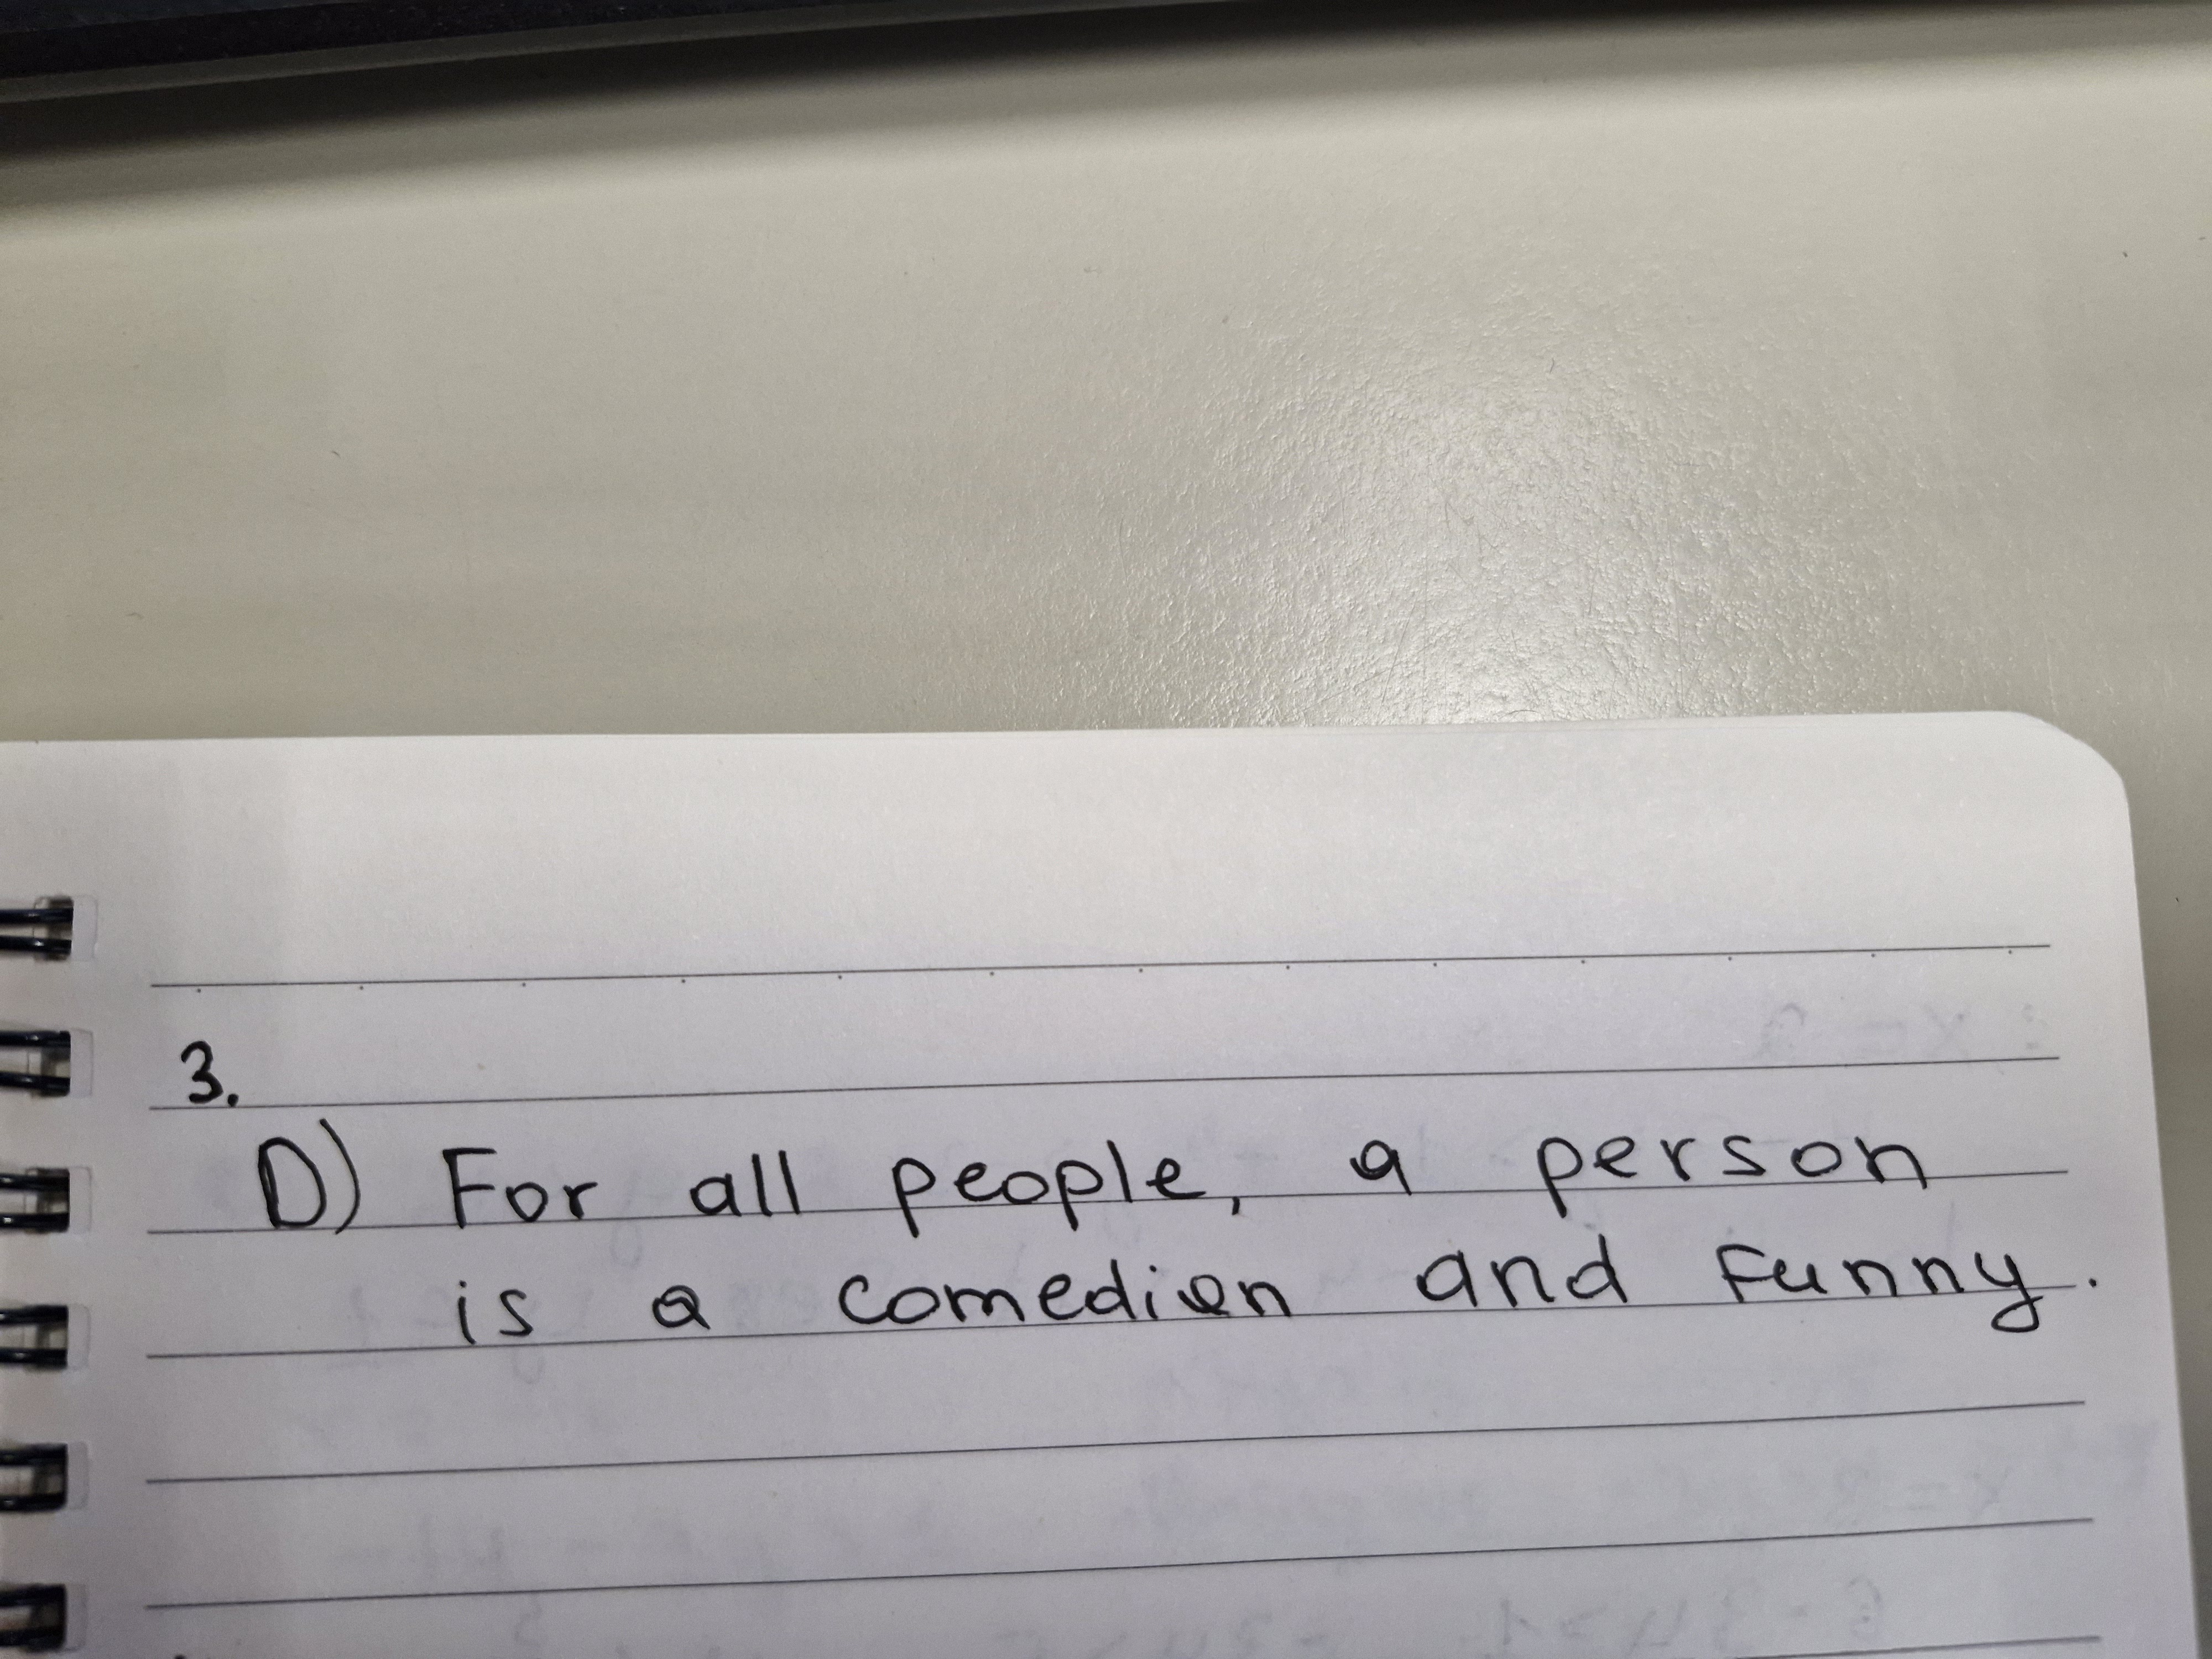 3.
D) For all people, a person
is a comedian and funny.